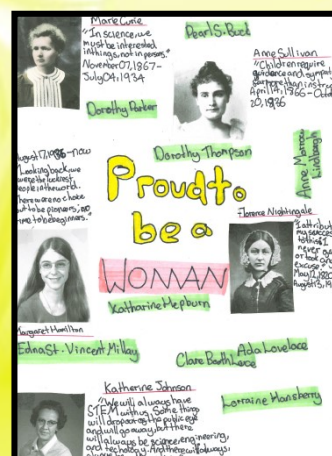 Marie Curie
"In science, we
must be interested
in things, not in persons."
November 07, 1867-
July 04, 1934
Pearl S. Buck
Anne Sullivan
"Children require
guidance and sympat
far more than instru
April 14, 1866 - Oct
20, 1936
Dorothy Parker
Dorothy Thompson
Anne Morrow
Lindbergh
ugust 17, 1936-now
Looking back, we
were the luckiest
eople in the world.
here was no choice
ut to be pioneers; no
me to be beginners."
Margaret Hamilton
Proud to
be a
WOMAN
Katharine Hepburn
Florence Nightingale
"I attribut
my success
to this: I
never ga
or took an
excuse."
May 12, 1820
August 13, 19
Edna St. Vincent Millay
Ada Lovelace
Clare Booth Luce
Katherine Johnson
"We will always have
STEM with us. Some things
will drop out of the public eye
and will go away, but there
will always be science, engineering,
and technology. And there will always,
Lorraine Hansberry